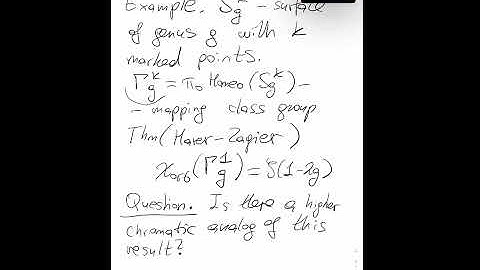 Example. S_g^k - surface
of genus g with k
marked points.
Γ_g^k = π_0 Homeo(S_g^k) -
- mapping class group
Thm (Harer-Zagier)
χ_orb(Γ_g^1) = ζ(1-2g)
Question. Is there a higher
chromatic analog of this
result?